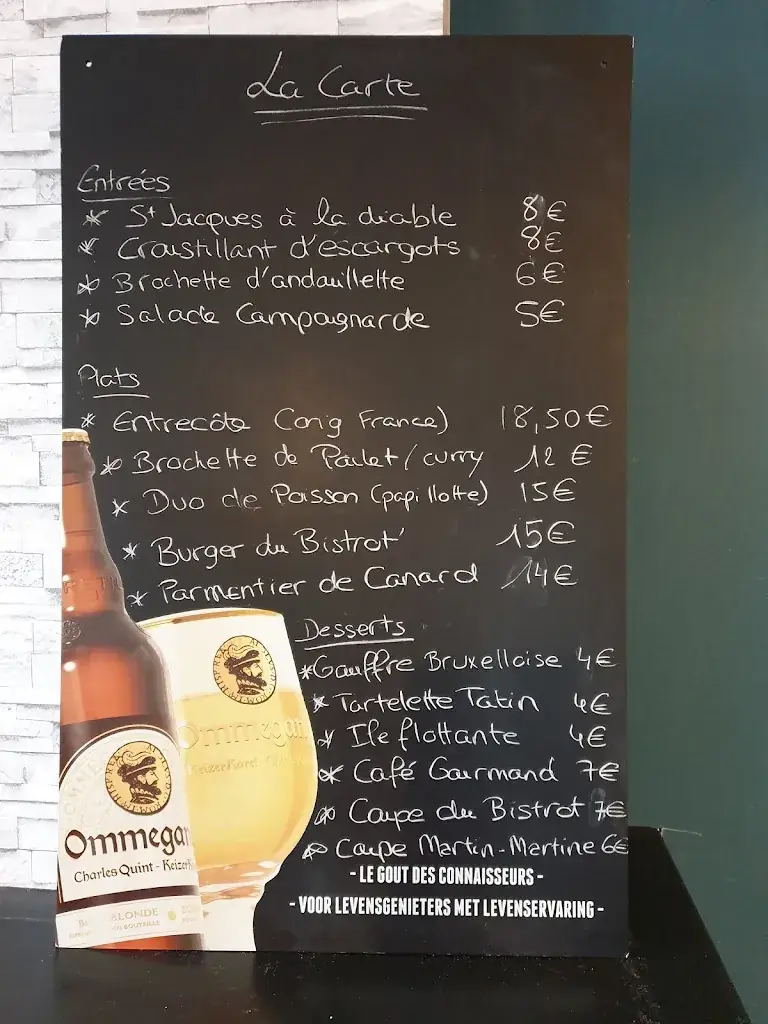 La Carte
Entrées
* St Jacques à la diable 8€
* Croustillant d'escargots 8€
* Brochette d'andouillette 6€
* Salade Campagnarde 5€
Plats
* Entrecôte (orig France) 18,50€
* Brochette de Poulet/curry 12 €
* Duo de Poisson (papillotte) 15€
* Burger du Bistrot' 15€
* Parmentier de Canard 14€
Desserts
* Gauffre Bruxelloise 4€
* Tartelette Tatin 4€
* Ile flottante 4€
* Café Gourmand 7€
* Coupe du Bistrot 7€
* Coupe Martin-Martine 6€
- LE GOUT DES CONNAISSEURS -
- VOOR LEVENSGENIETERS MET LEVENSERVARING -
Ommegan
Ommegan
Charles Quint - Keizer
BLONDE